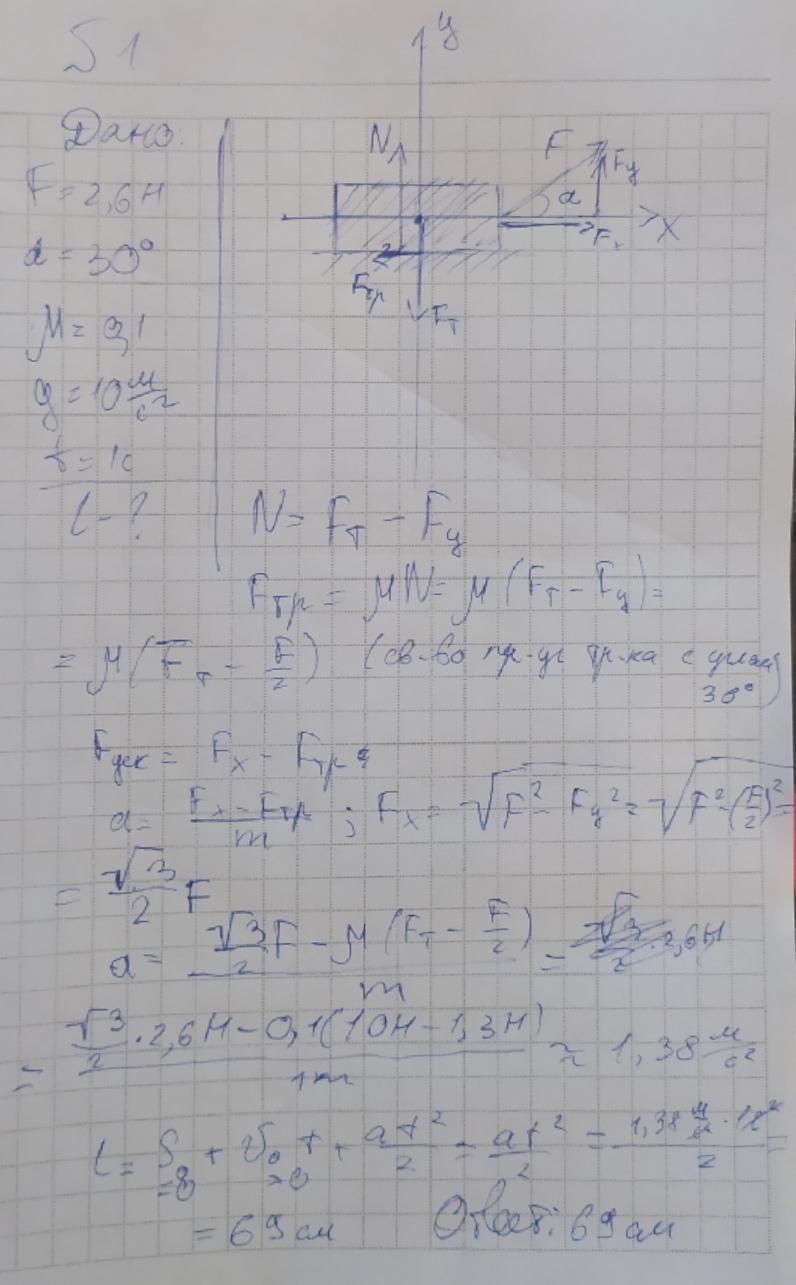 S1
Дано:
F = 2,6 Н
α = 30°
μ = 0,1
g = 10 м/с²
t = 1с
l - ?
y
N
F
Fy
α
Fx
X
Fтр
Fт
N = Fт - Fy
Fтр = μN = μ(Fт - Fy) =
= μ(Fт - F/2) (св-во пр-уг тр-ка с углом
30°)
Fуск = Fx - Fтр
a = (Fx - Fтр)/m ; Fx = √(F² - Fy²) = √(F² - (F/2)²) =
= √3/2 F
a = (√3/2 F - μ(Fт - F/2))/m =
= (√3/2 · 2,6 Н - 0,1(10Н - 1,3Н))/1m ≈ 1,38 м/с²
l = S₀ + v₀t + at²/2 = at²/2 = (1,38 м/с² · 1с²)/2 =
=0 =0
= 69 см Ответ: 69 см